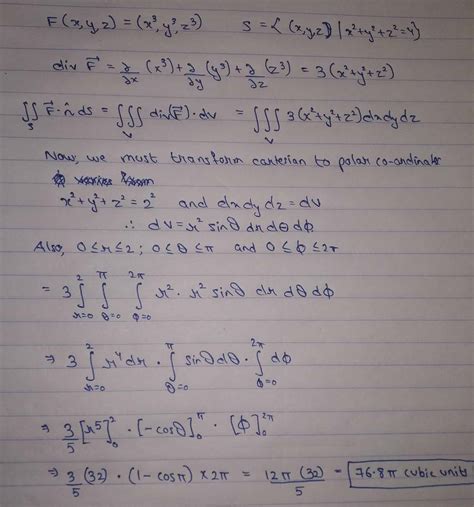 F(x,y,z) = (x³,y³,z³)    S = {(x,y,z) | x²+y²+z²=4}
div F⃗ = ∂/∂x (x³) + ∂/∂y (y³) + ∂/∂z (z³) = 3(x²+y²+z²)
∬_S F⃗·n̂ ds = ∭_V div(F⃗)·dv = ∭_V 3(x²+y²+z²)dxdydz
Now, we must transform cartesian to polar co-ordinates
x²+y²+z² = 2² and dxdydz = dV
∴ dV = r² sinθ dr dθ dϕ
Also, 0≤r≤2; 0≤θ≤π and 0≤ϕ≤2π
= 3 ∫_{r=0}^{2} ∫_{θ=0}^{π} ∫_{ϕ=0}^{2π} r²·r² sinθ dr dθ dϕ
⇒ 3 ∫_{r=0}^{2} r⁴ dr · ∫_{θ=0}^{π} sinθ dθ · ∫_{ϕ=0}^{2π} dϕ
⇒ 3/5 [r⁵]_0^2 · [-cosθ]_0^π · [ϕ]_0^{2π}
⇒ 3/5 (32) · (1-cosπ) × 2π = 12π(32)/5 = 76.8π cubic units